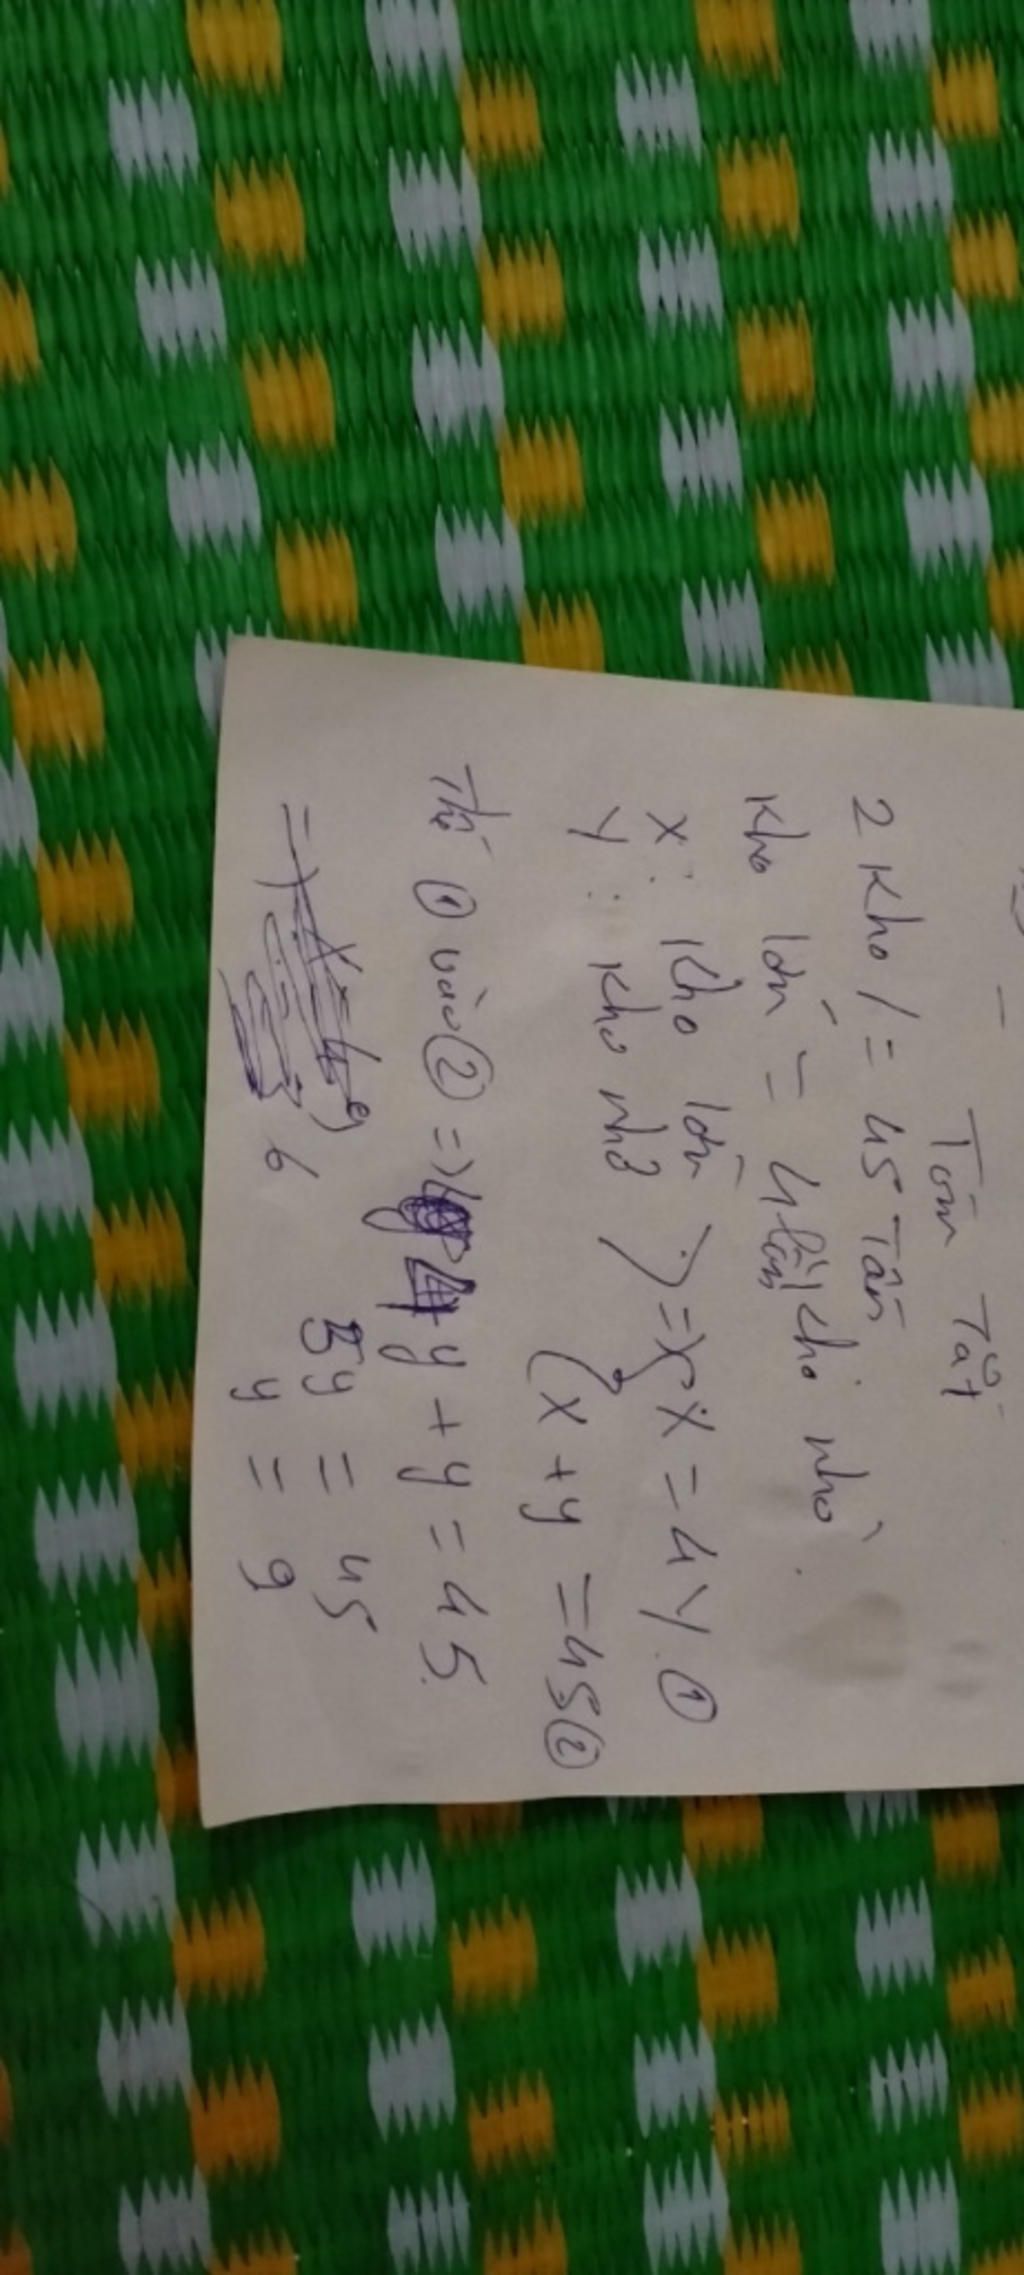 Tóm Tắt
2 Kho = 45 Tấn
Kho lớn = 4 lần kho nhỏ
x: Kho lớn
y: Kho nhỏ
=> x = 4y ①
x + y = 45 ②
Thế ① vào ② => 4y + y = 45
5y = 45
y = 9